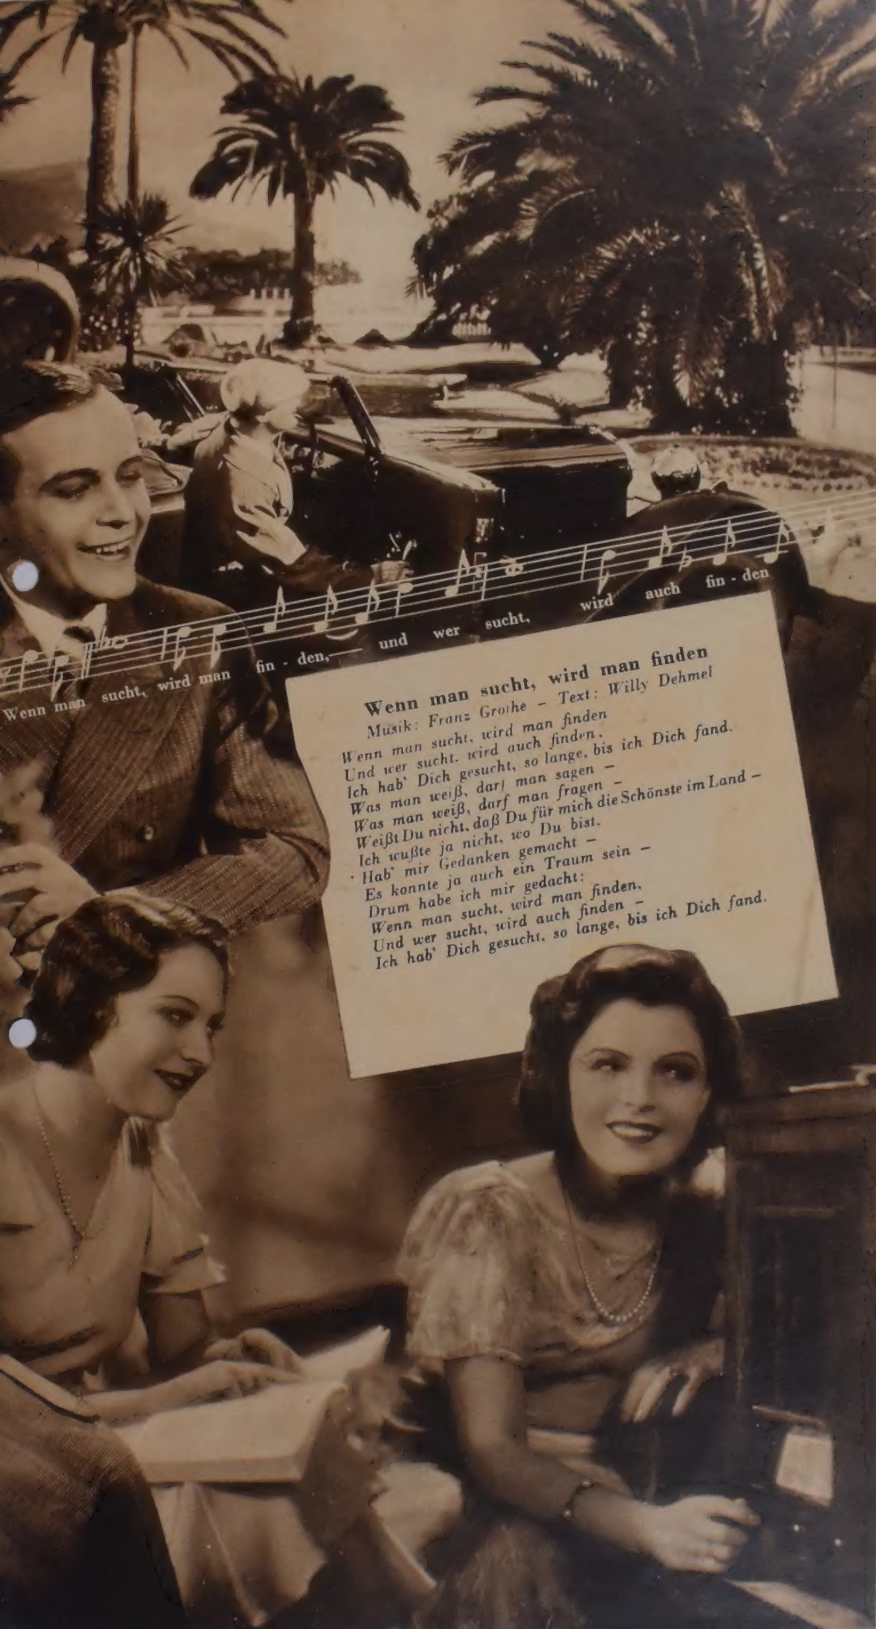 Wenn man sucht, wird man fin - den,— und wer sucht, wird auch fin - den
Wenn man sucht, wird man finden
Musik: Franz Grothe – Text: Willy Dehmel
Wenn man sucht, wird man finden
Und wer sucht, wird auch finden.
Ich hab' Dich gesucht, so lange, bis ich Dich fand.
Was man weiß, darf man sagen –
Was man weiß, darf man fragen –
Weißt Du nicht, daß Du für mich die Schönste im Land –
Ich wußte ja nicht, wo Du bist.
Hab' mir Gedanken gemacht –
Es konnte ja auch ein Traum sein –
Drum habe ich mir gedacht:
Wenn man sucht, wird man finden,
Und wer sucht, wird auch finden –
Ich hab' Dich gesucht, so lange, bis ich Dich fand.